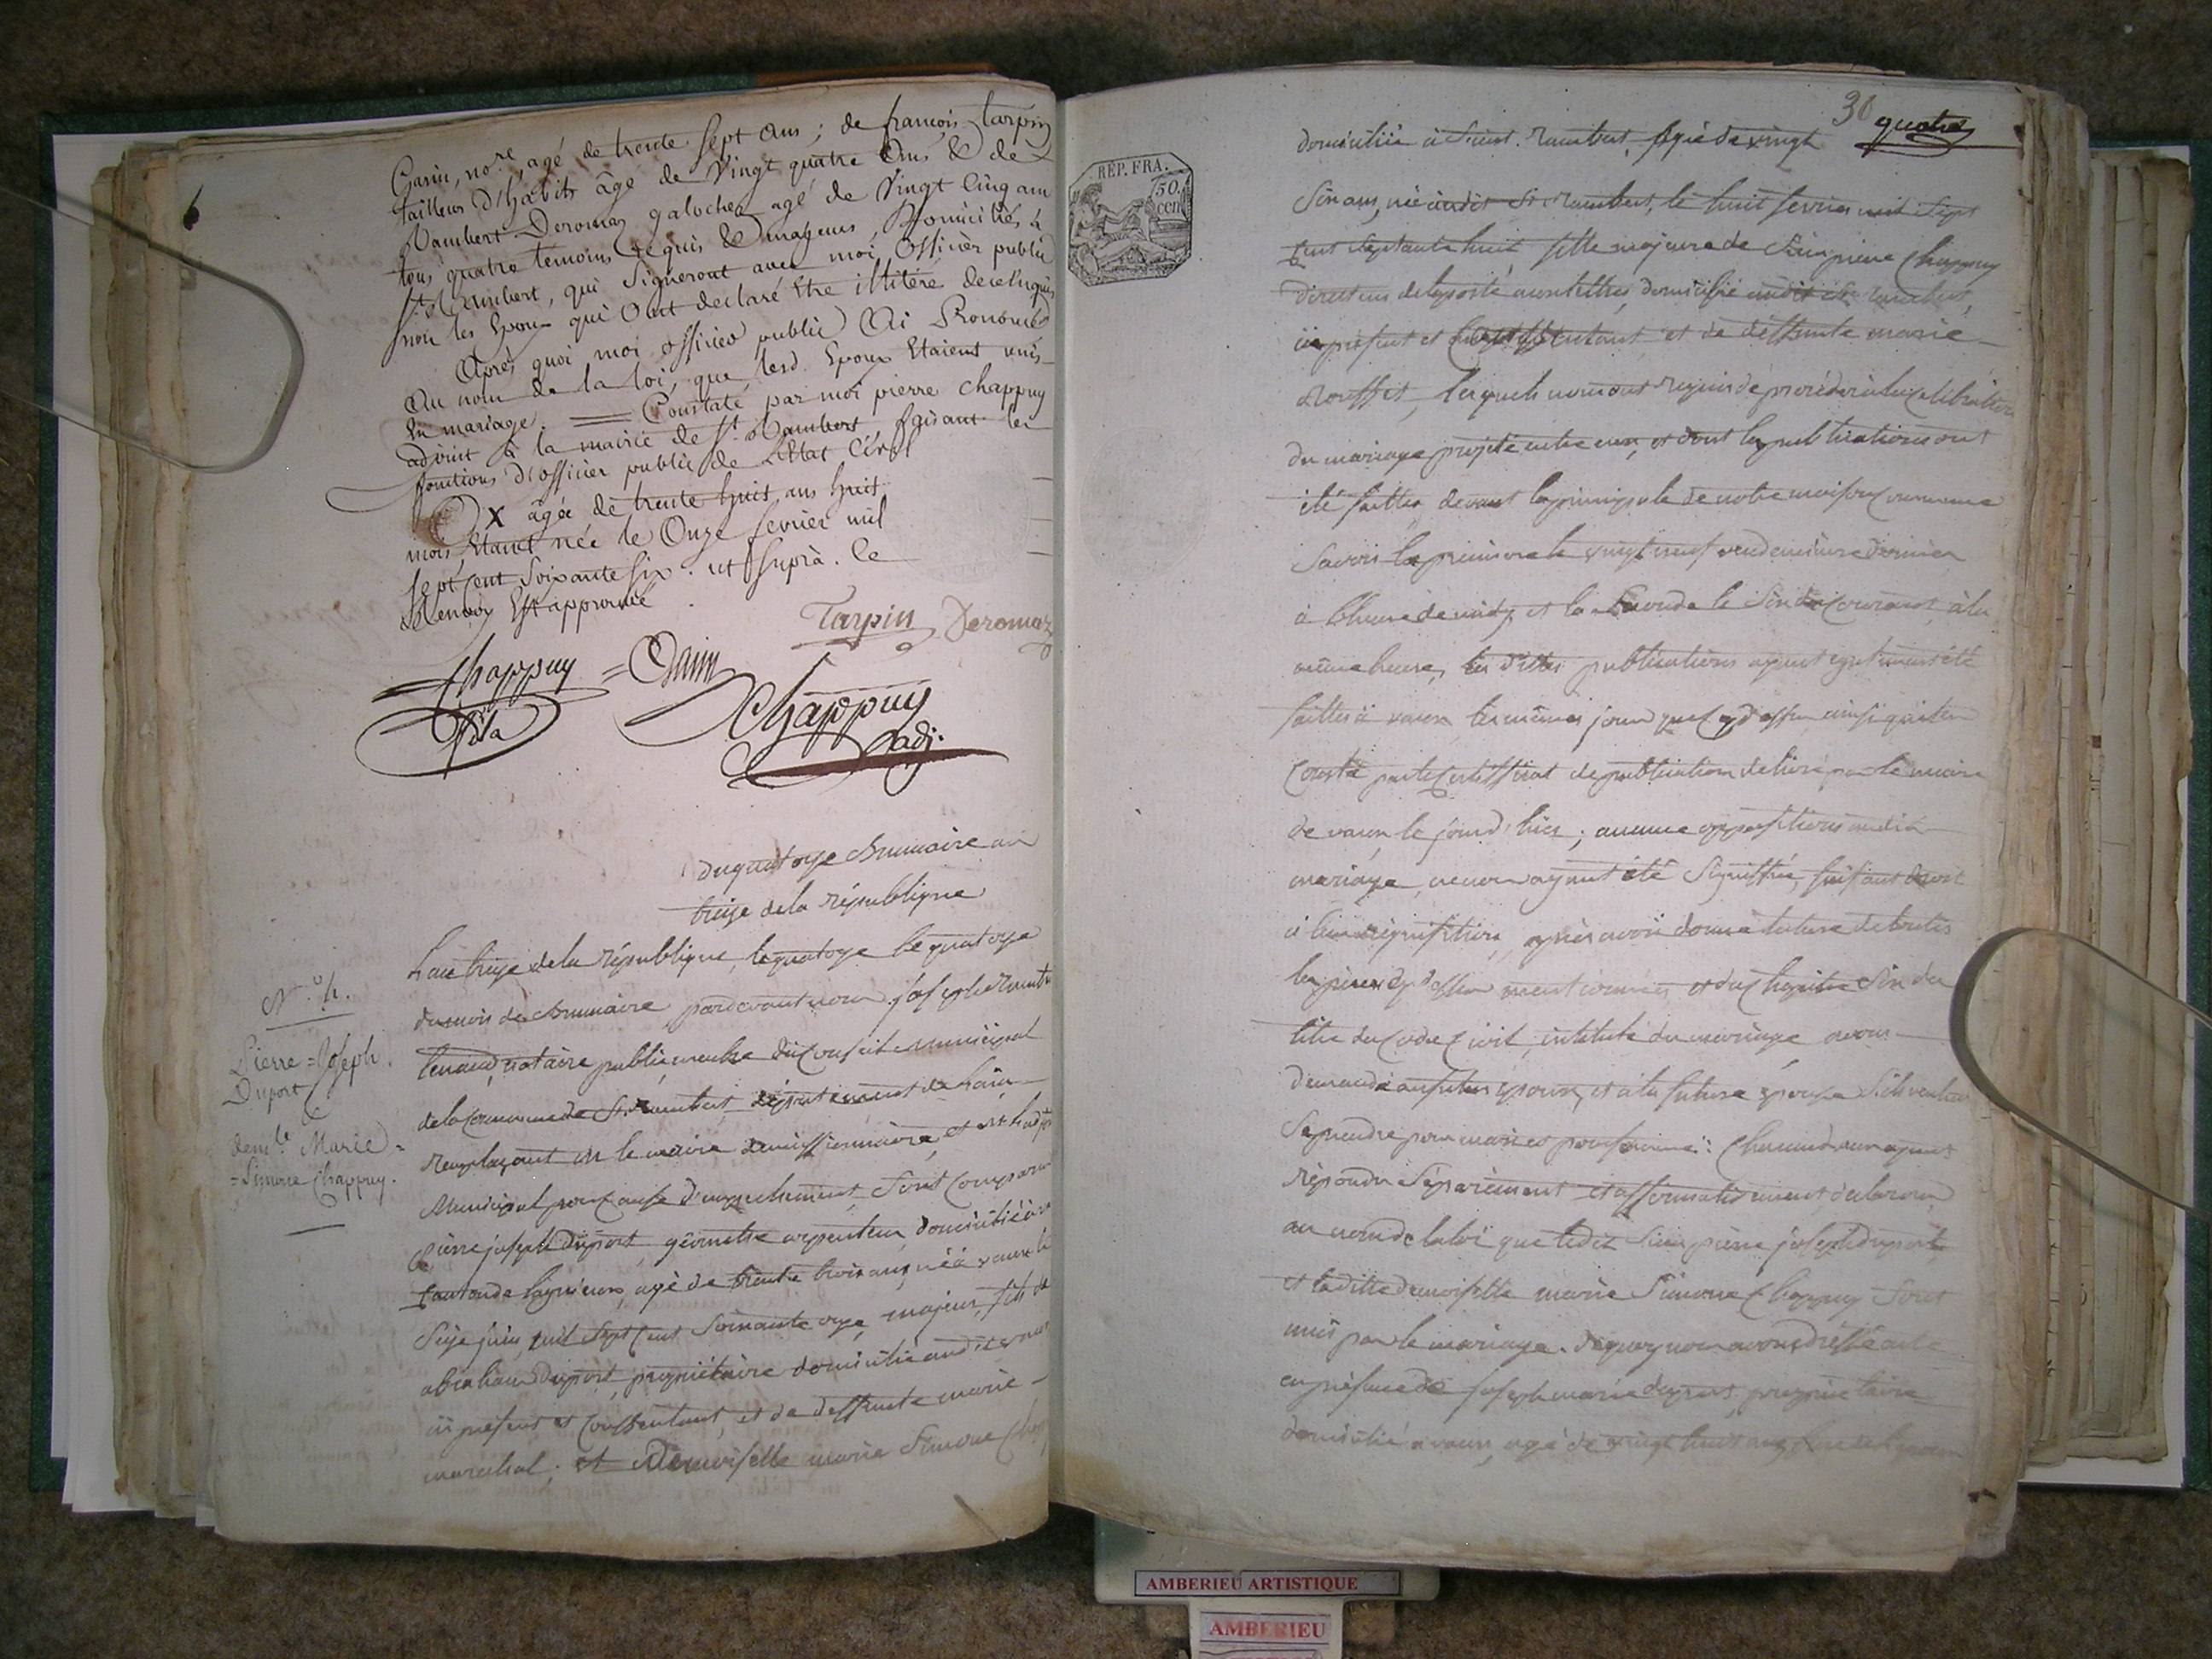 Garin, no.re, agé de trente sept ans ; de françois tarpin
tailleur d'habits âgé de Vingt quatre Ans & de
Rambert Deromaz galocher agé de Vingt Cinq ans
tous quatre temoins requis & majeurs, Domiciliés à
St. Rambert, qui Signeront avec moi Officier public
non les Epoux qui Ont declaré être illitérés de ce enquis
Après quoi moi officier public Ai Prononcé
Au nom de la loi, que lesd. Epoux Etaient unis
En mariage. = Constaté par moi pierre chappuy
adjoint à la mairie de St. Rambert, faisant les
fonctions d'officier public de L'Etat Civil
X âgée de trente huit ans huit
mois Etant née le Onze fevrier mil
Sept Cent Soixante Six. ut Suprà. Ce
Renvoy Est approuvé
Tarpin Deromaz
Chappuy
fils
Garin
Chappuy
adj.
du quatorze Brumaire an
treize de la république
N.o 4.
Pierre=Joseph
Duport
&
dem.le Marie=
=Simone Chappuy.
L'an treize de la république, le quatorze le quatorze
du mois de Brumaire, pardevant nous joseph
notaire public membre du Conseil municipal
de la Commune de St. Rambert département de L'ain
remplaçant Mr le maire demissionnaire, et
Municipal pour Cause d'empechement, Sont Comparus
Pierre joseph Duport géomètre arpenteur, domicilié à
Canton de lagnieux, agé de trente trois ans, né à vaux le
Seize juin mil Sept Cent Soixante onze, majeur, fils de
abraham Duport, propriétaire domicilié audit vaux
ici présent et Consentant, et de deffunte marie
marechal ; et Demoiselle marie Simone Chap
30 quatre
RÉP. FRA.
50.
cen
domiciliée à Saint Rambert, agée de vingt
Six ans, née audit St Rambert, le huit fevrier mil Sept
Cent Septante huit fille majeure de Sieur pierre Chappuy
directeur de la poste aux lettres, domicilié audit St Rambert,
ici présent et Consentant, et de deffunte marie
Rousset, lesquels nous ont requis de procéder à la Célébration
du mariage projeté entre eux, et dont les publications ont
été faittes devant la principale de notre maison Commune
Savoir la première le vingt neuf vendemiaire dernier
à l'heure de midy, et la Seconde le Six du Courant, à la
même heure, les dittes publications ayant egalement été
faittes à vaux les mêmes jours que Cy dessus ainsi qu'il en
Conste par le Certifficat de publication delivré par le maire
de vaux le jour d'hier ; aucune opposition audit
mariage ne nous ayant été Signiffiée, faisant droit
à leur réquisition, après avoir donné lecture de toutes
les pièces Cy dessus mentionnées et du Chapitre Six du
titre du Code Civil, intitulé du mariage, avons
demandé au futur époux, et à la future épouse S'ils veulent
Se prendre pour mari et pour femme : Chacun d'eux ayant
répondu Séparément et affirmativement, declarons
au nom de la loi que ledit Sieur pierre joseph duport
et laditte demoiselle marie Simone Chappuy Sont
unis par le mariage. De quoy nous avons dressé acte
en présence de joseph marie duport, propriétaire
domicilié à vaux, agé de vingt huit ans,
AMBERIEU ARTISTIQUE
AMBERIEU